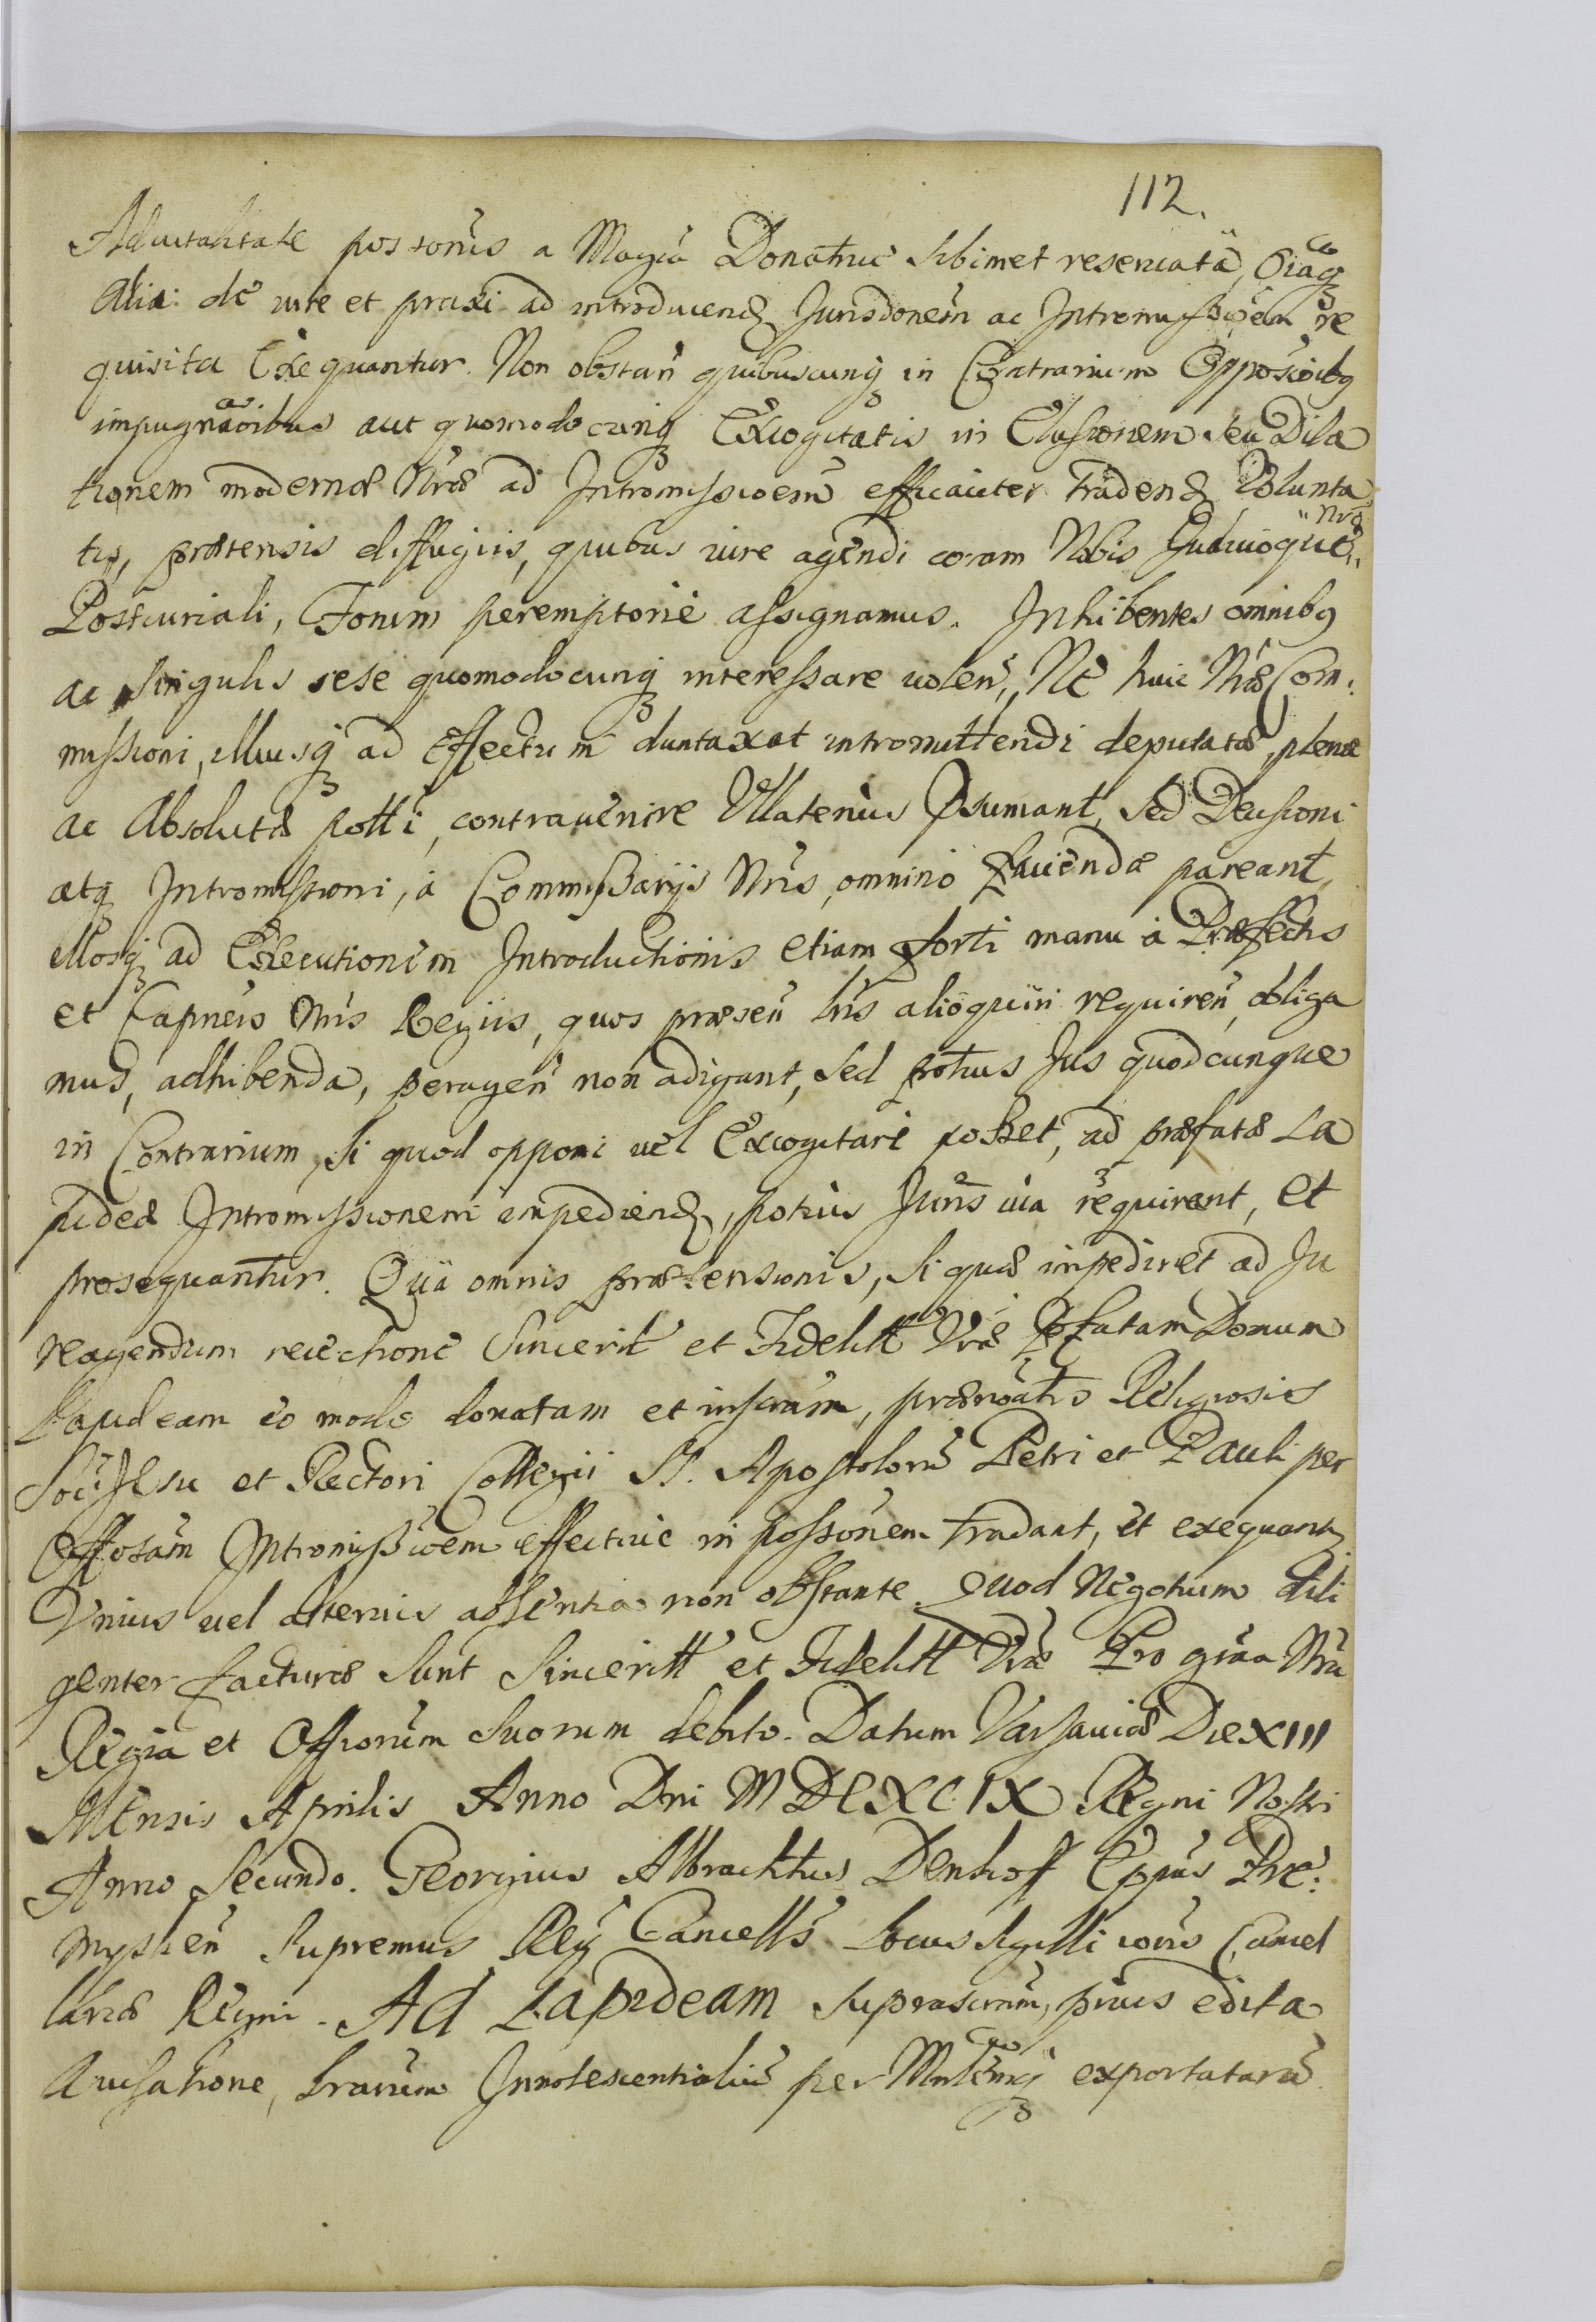 112.
Advitalitate possonis a Magca Donatrice sibimet reservata, Oiaq
Alia: de iure et praxi ad introducend Jurisdonem ac Intromissioem re
quisita Exequantur. Non obstan quibuscunq in Contrarium Oppositoibq
impugnaoibus aut quomodocunq Excogitatis in Elusionem seu Dila
tionem modernæ Nræ ad Intromissioem efficaciter tradend Volunta
tis, prætensis diffugiis, quibus iure agendi coram Nobis Judicioque Nro
Postcuriali, Forum peremptorie assignamus. Inhibentes omnibq
ac singulis sese quomodocunq interessare volen, Ne huic Nræ Com:
missioni, illiusq ad Effectum duntaxat intromittendi deputatæ, plenæ
ac Absolutæ potti, contravenire Ullatenus Psumant, sed Decisioni
atq Intromissioni, a Commissarijs Nris, omnino faciendæ pareant,
illosq ad Executionem Introductionis etiam forti manu a Præfectis
et Capneis Nris Regiis, quos præsen lris alioquin requiren, obliga
mus, adhibenda, peragen non adigant, sed protius Jus quodcunque
in Contrarium, si quod opponi vel Excogitari posset, ad præfatæ La
pideæ Intromissionem impediend, potius Juris via requirant, et
prosequantur. Qua omnis prætensionis, si quæ inpediret ad Ju
reagendum reiectione Sincerit et Fidelitt Vræ Pefatam Domum
Lapideam eo modo donatam et inscram, prænoatis Religiosis
Soc: JEsu et Rectori Collegii SS. Apostolorū Petri et Pauli per
Effosam Intromissioem effective in possonem tradant, et exequant
Unius vel alterius absentia non obstante. Quod Negotium dili
genter facturæ sunt Sinceritt et Fidelitt Vræ Pro graa Nra
Regia et Offiorum suorum debito. Datum Varsaviæ Die XIII
Mensis Aprilis Anno Dni MDCXCIX Regni Nostri
Anno Secundo. Georgius Albrachtus Denhoff Eppus Præ:
myslien Supremus Reg Cancells. Locus Sigilli ioris Cancel
lariæ Regni. Ad Lapideam suprascram, prius edita
Avisatione, lrarum Innotescentialiū per exportatarū